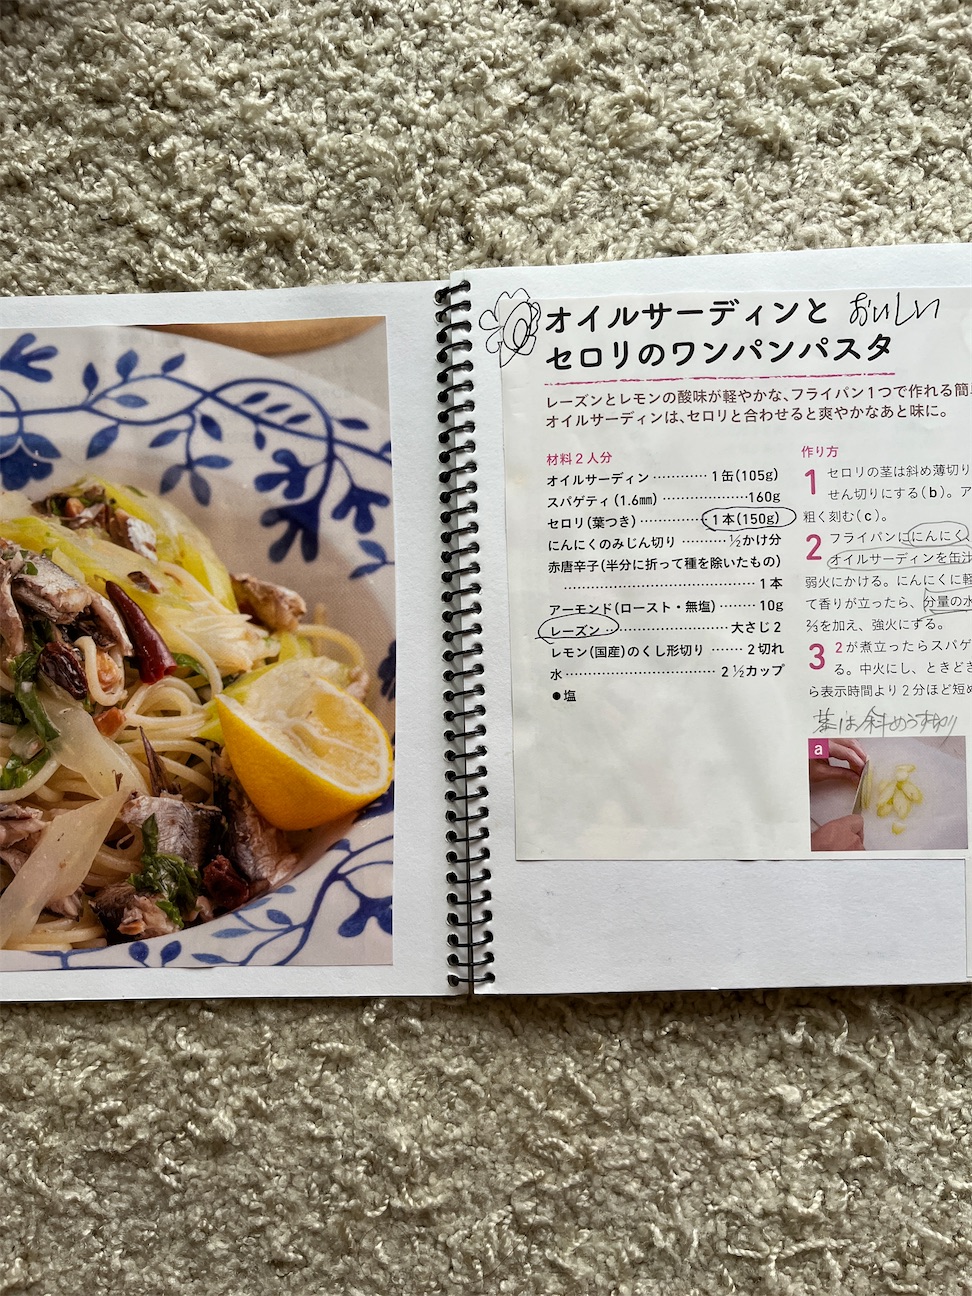 オイルサーディンと おいしい
セロリのワンパンパスタ
レーズンとレモンの酸味が軽やかな、フライパン1つで作れる簡
オイルサーディンは、セロリと合わせると爽やかなあと味に。
材料2人分
オイルサーディン ············ 1缶(105g)
スパゲティ(1.6㎜) ···················160g
セロリ(葉つき) ···············1本(150g)
にんにくのみじん切り ·········· ½かけ分
赤唐辛子(半分に折って種を除いたもの)
··········································· 1本
アーモンド(ロースト・無塩) ········ 10g
レーズン ····························· 大さじ2
レモン(国産)のくし形切り ······· 2切れ
水 ······························ 2½カップ
●塩
作り方
1 セロリの茎は斜め薄切り
せん切りにする(b)。ア
粗く刻む(c)。
2 フライパンににんにく
オイルサーディンを缶汁
弱火にかける。にんにくに軽
て香りが立ったら、分量の水
⅔を加え、強火にする。
3 2が煮立ったらスパゲ
る。中火にし、ときどき
ら表示時間より2分ほど短め
茎は斜めうす切り
a